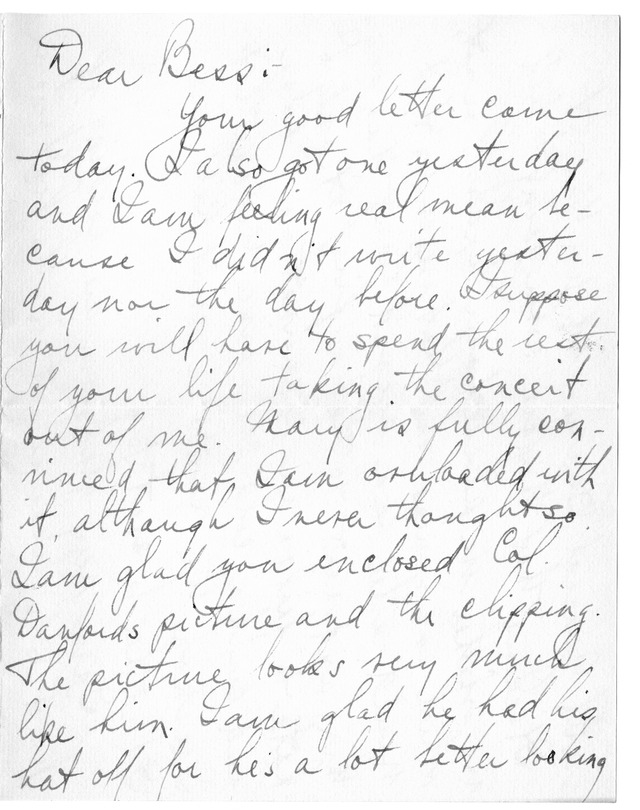 Dear Bess:-
Your good letter come
today. I also got one yesterday
and I am feeling real mean be-
cause I didn't write yester-
day nor the day before. I suppose
you will have to spend the rest
of your life taking the conceit
out of me. Mary is fully con-
vinced that I am overloaded with
it, although I never thought so.
I am glad you enclosed Col.
Danfords picture and the clipping.
The picture looks very much
like him. I am glad he had his
hat off for he's a lot better looking